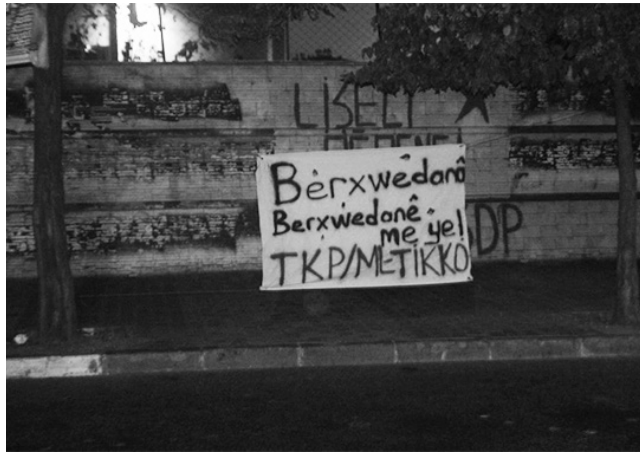 LİSELİ
Bêrxwedana
Berxwedanê
me ye!
DP
TKP/ML-TİKKO